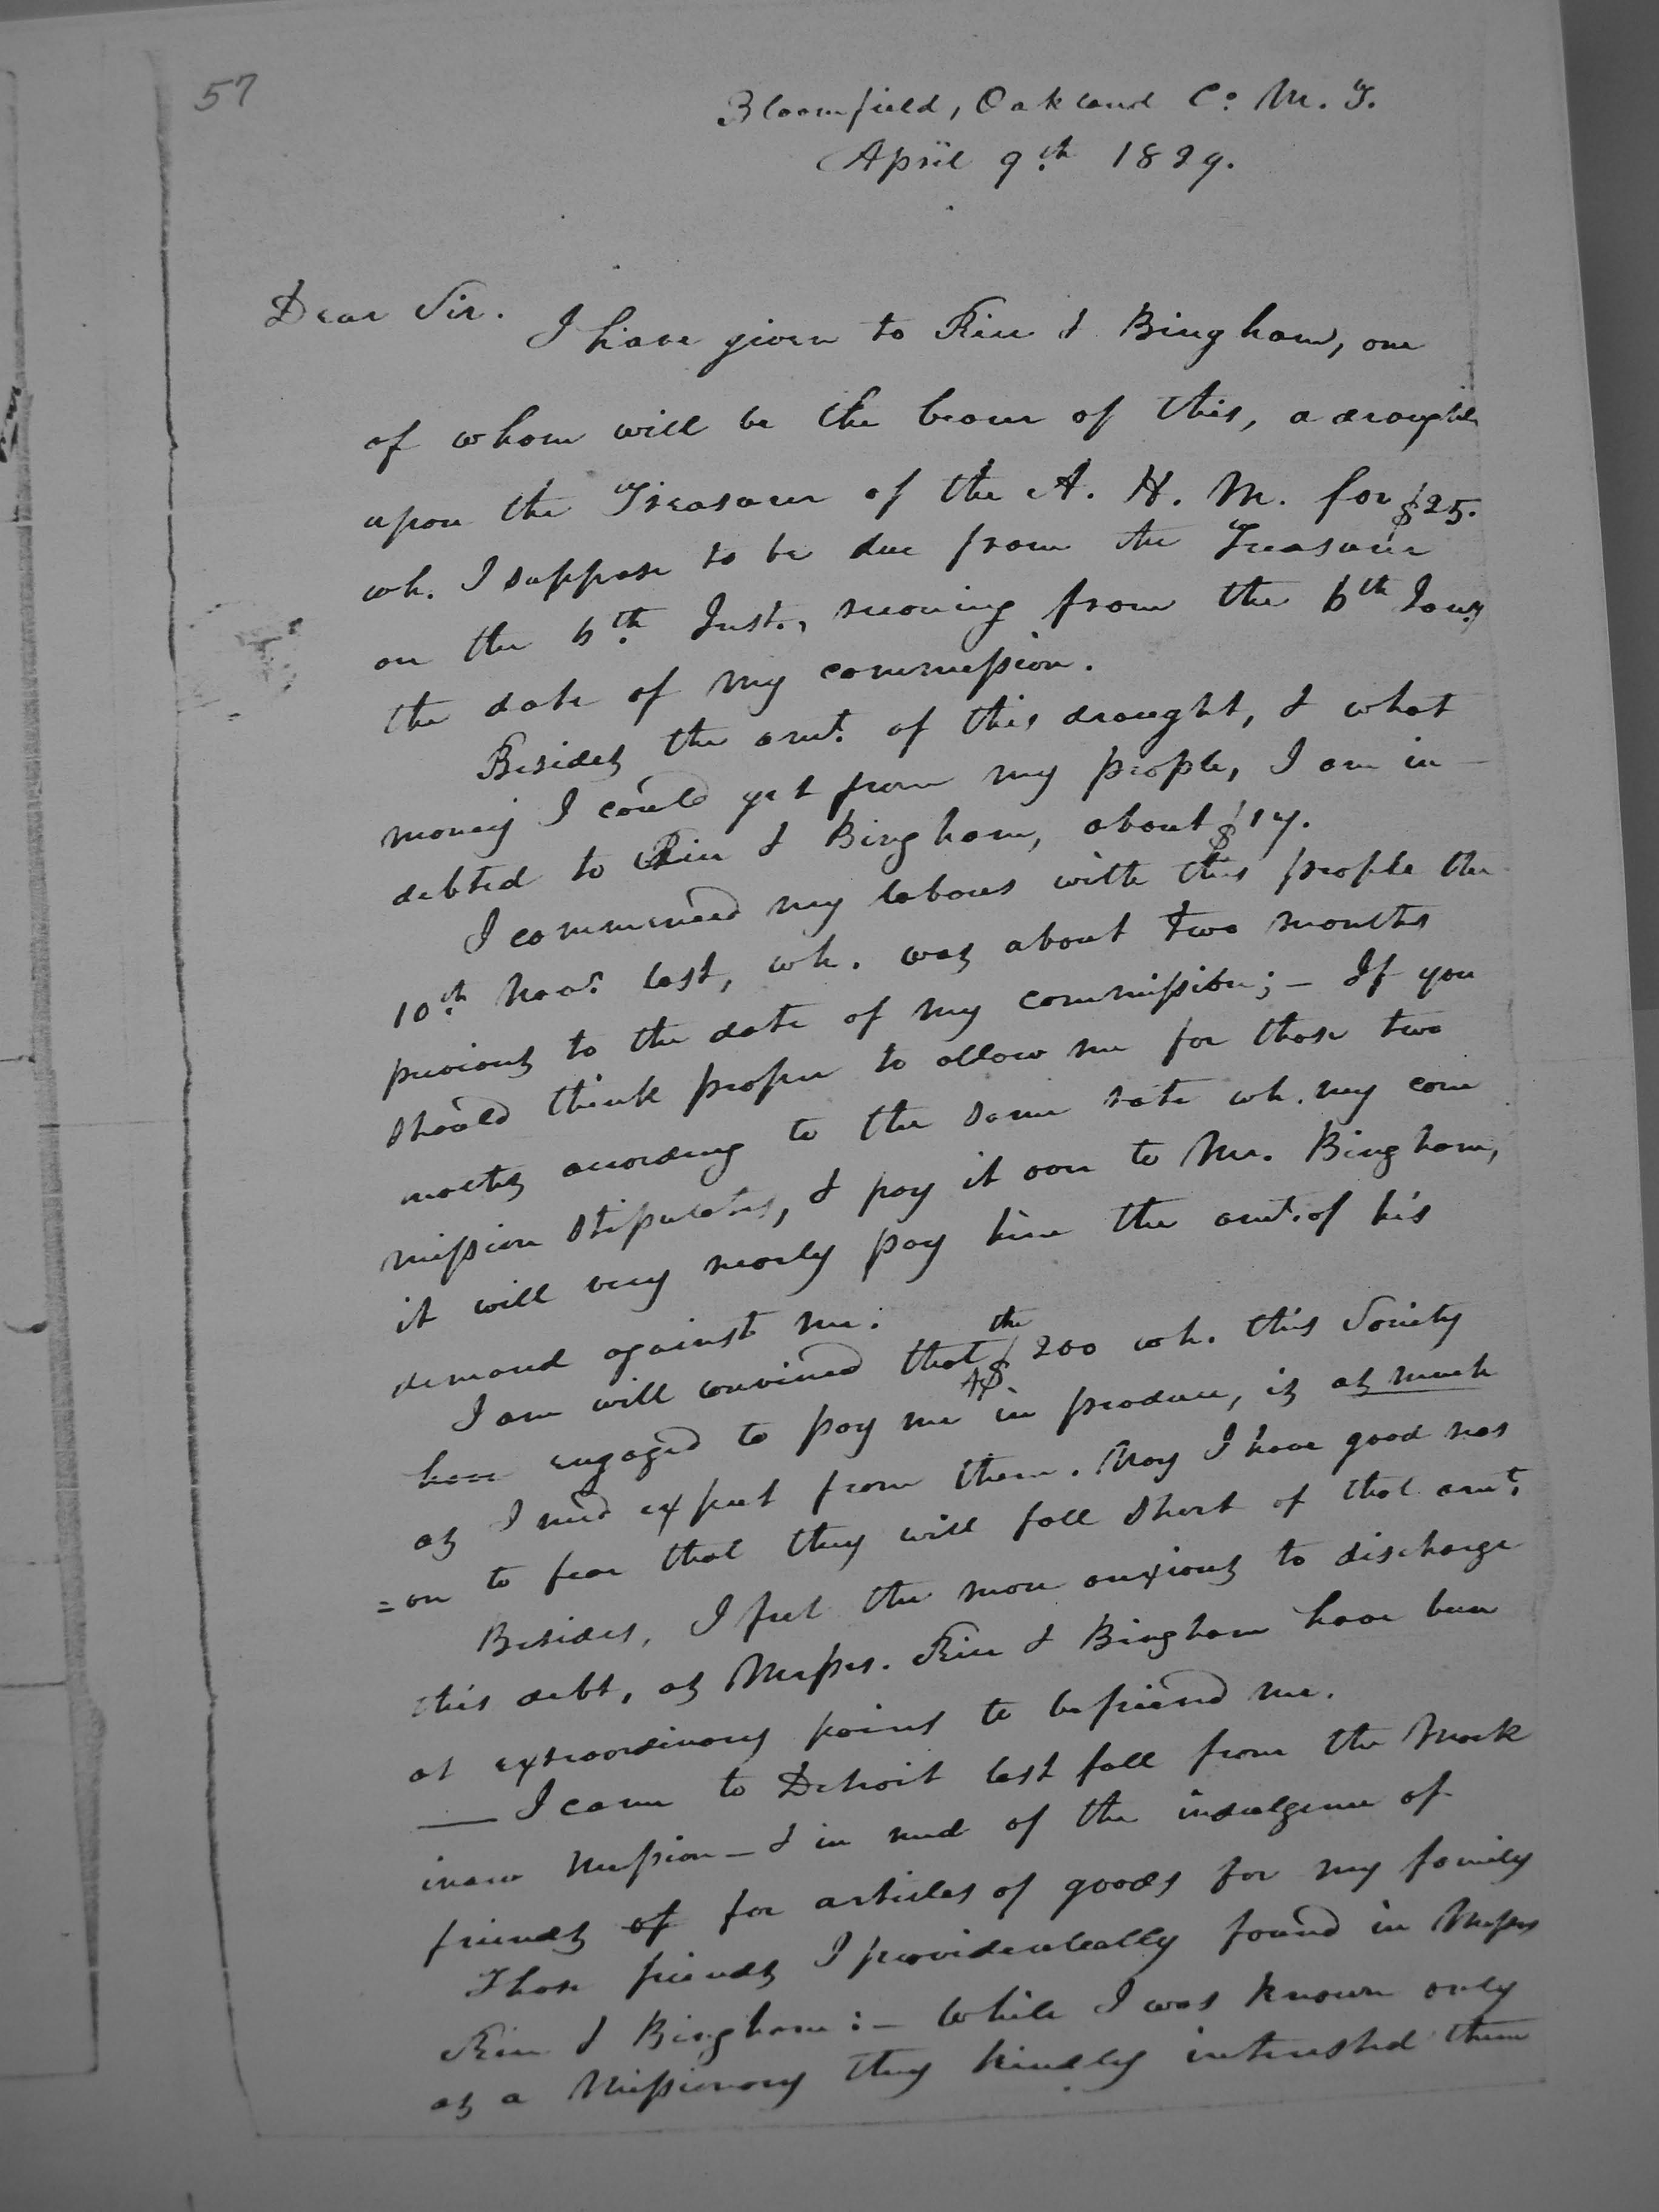 57
Bloomfield, Oakland Co. M. T.
April 9th 1829.
Dear Sir.
I have given to Rice & Bingham, one
of whom will be the bearer of this, a draught
upon the Treasurer of the A. H. M. for $25.
wh. I suppose to be due from the Treasurer
on the 6th Inst., reconing from the 6th Jany
the date of my commission.
Besides the amt. of this draught, & what
money I could get from my people, I am in
debted to Rice & Bingham, about $17.
I commenced my labours with this people the
10th Nov. last, wh. was about two months
previous to the date of my commission; – If you
should think proper to allow me for those two
months according to the same rate wh. my com
mission stipulates, & pay it over to Mr. Bingham,
it will very nearly pay him the amt. of his
demand against me.
I am well convinced that the $200 wh. this Society
have engaged to pay me in produce, is as much
as I need expect from them. Nay I have good reas
=on to fear that they will fall short of that amt.
Besides, I feel the more anxious to discharge
this debt, as Messrs. Rice & Bingham have been
at extraordinary pains to befriend me.
— I came to Detroit last fall from the Mack
inaw Mission – & in need of the indulgence of
friends of for articles of goods for my family
Those friends I providentially found in Messrs
Rice & Bingham: – While I was known only
as a Missionary they kindly interested them